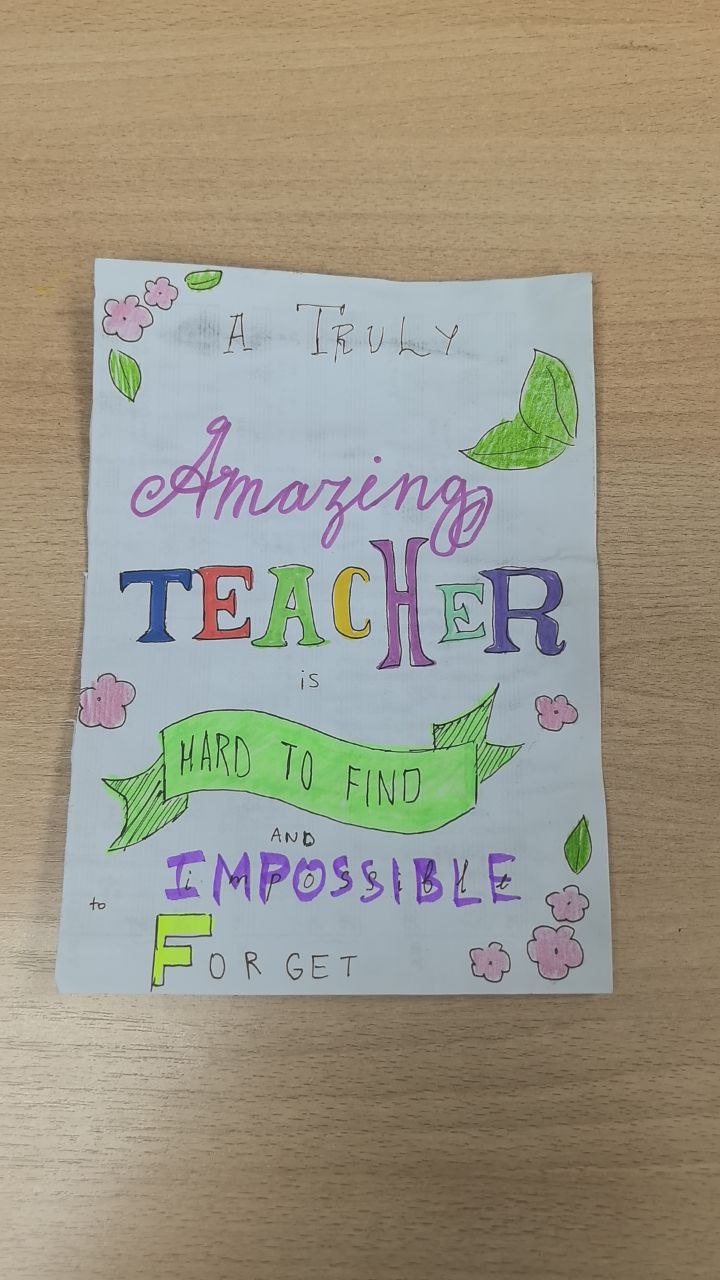 A TRULY
Amazing
TEACHER
is
HARD TO FIND
AND
IMPOSSIBLE
to
FORGET